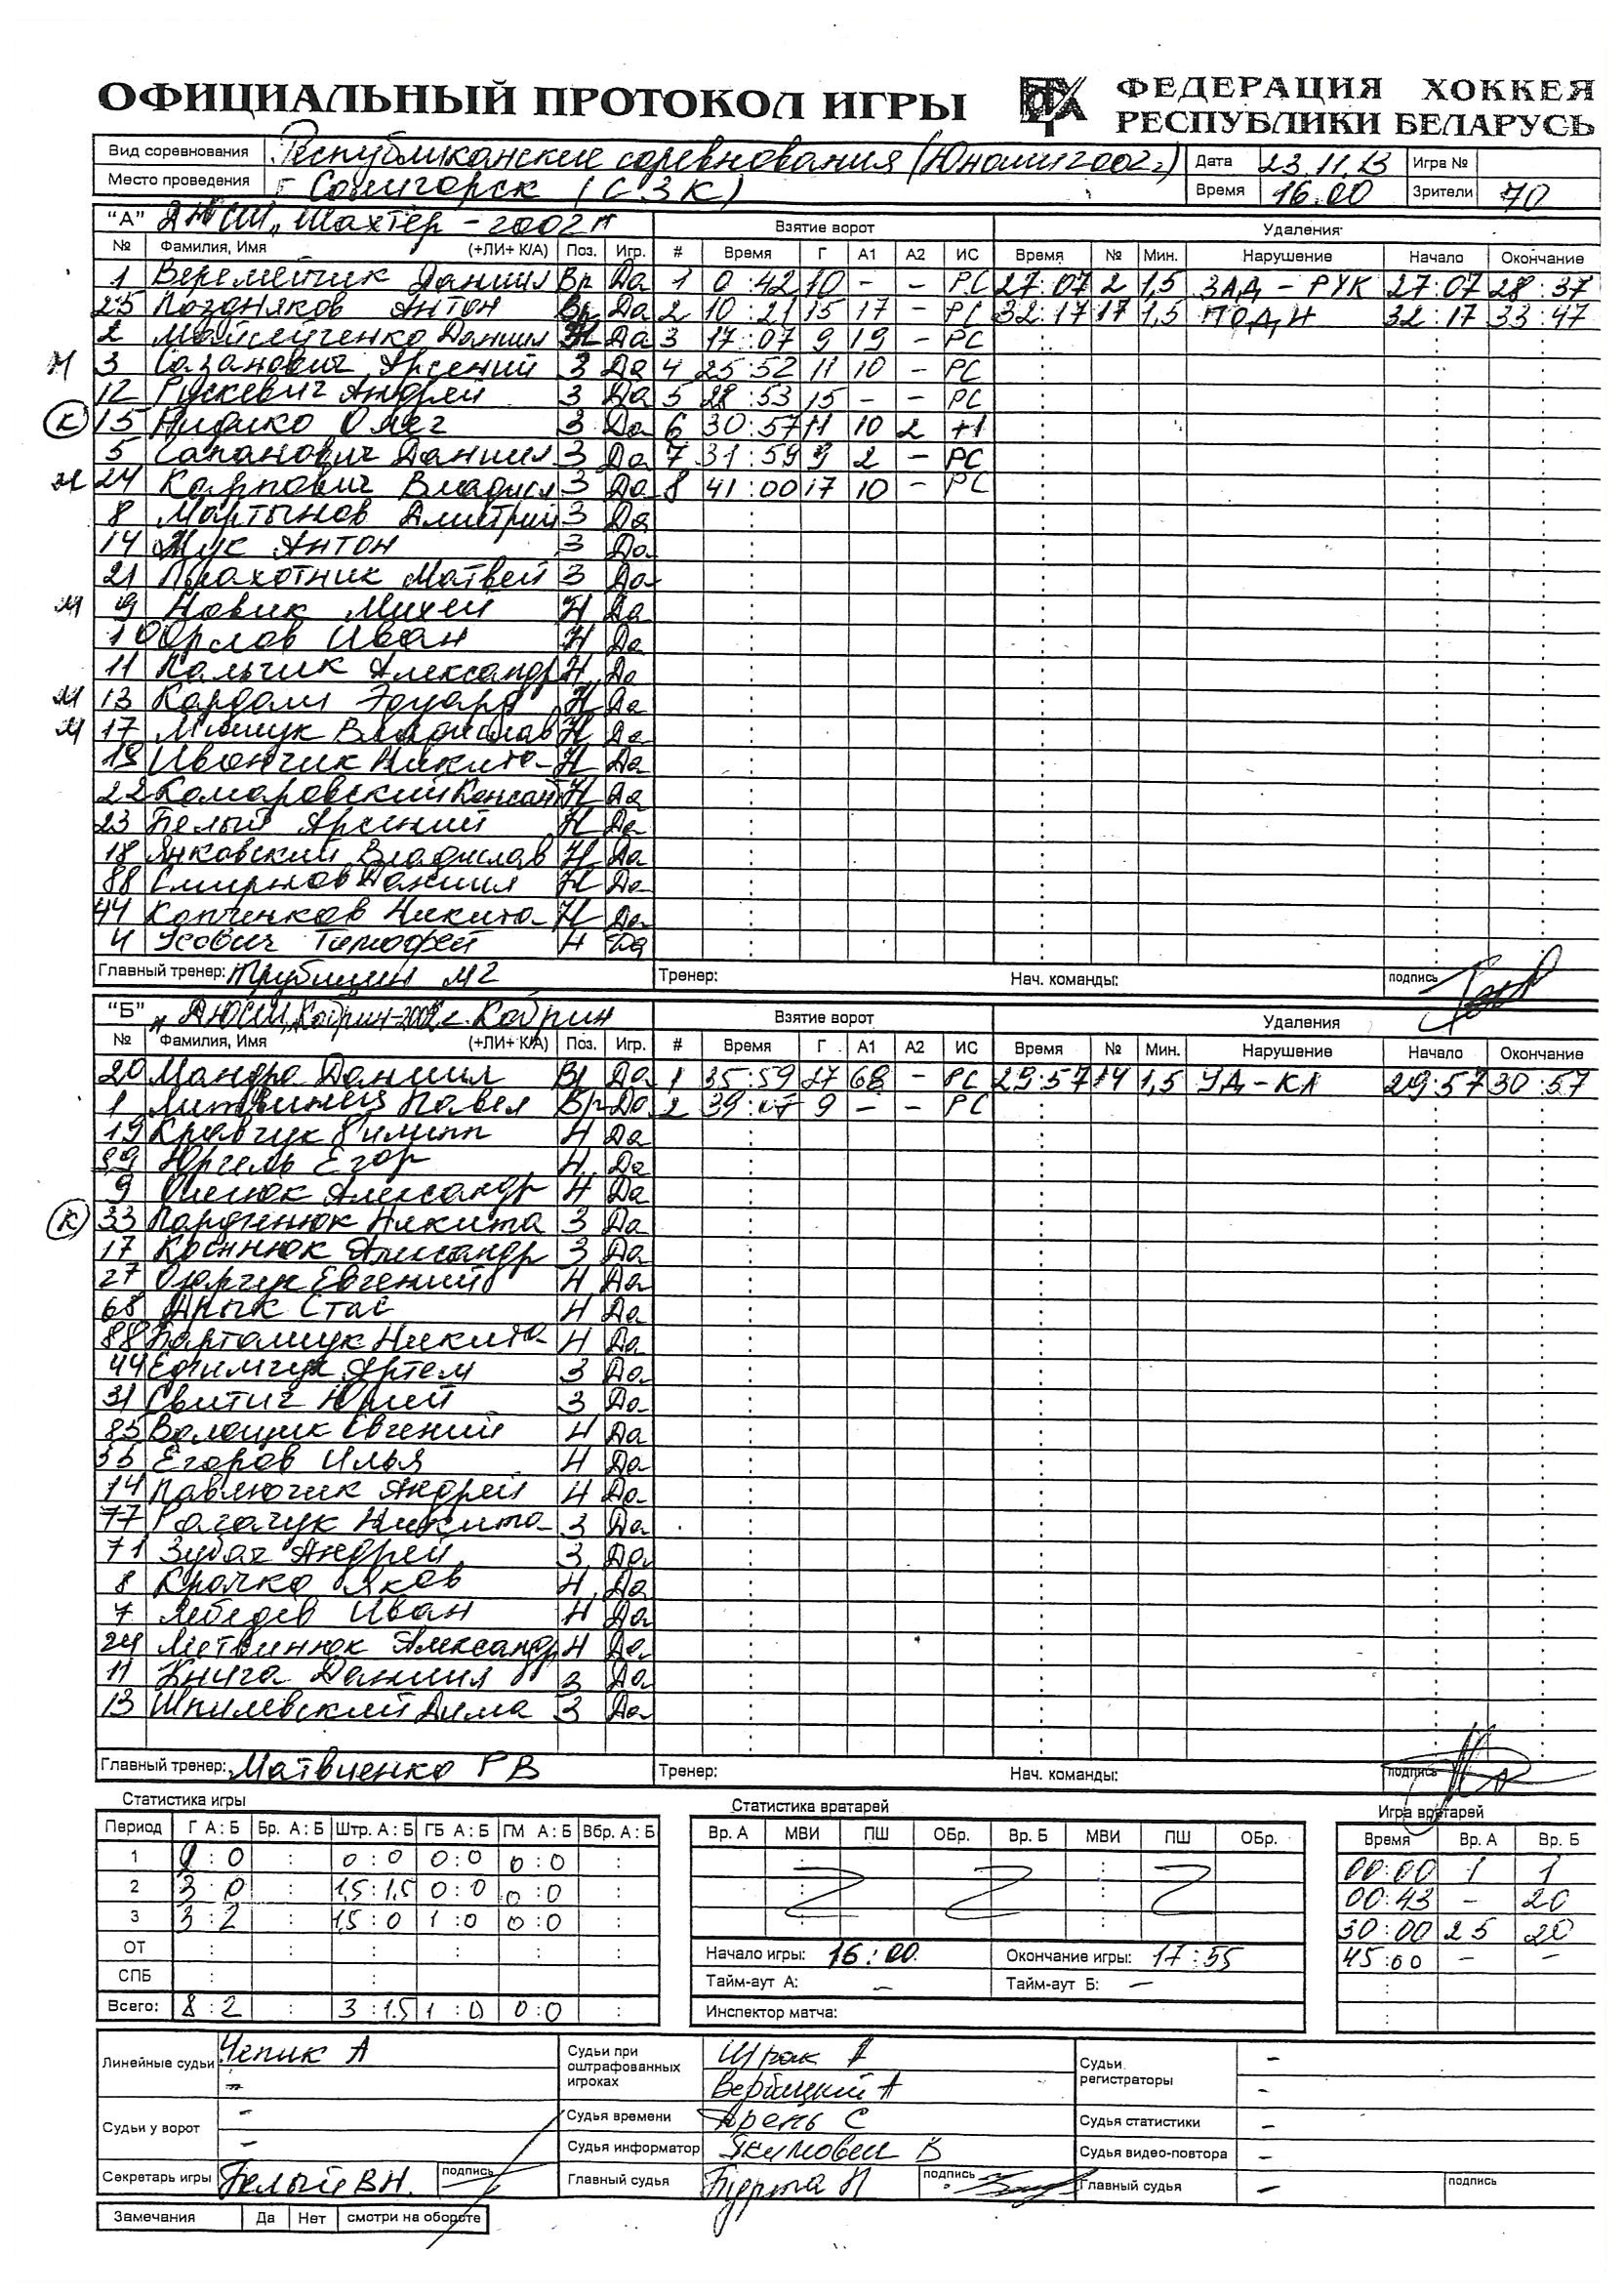 ОФИЦИАЛЬНЫЙ ПРОТОКОЛ ИГРЫ ФЕДЕРАЦИЯ ХОККЕЯ РЕСПУБЛИКИ БЕЛАРУСЬ
Вид соревнования Республиканские соревнования (Юноши 2002 г) Дата 23.11.13 Игра №
Место проведения г Солигорск (СЗК) Время 16.00 Зрители 70
"А" ДЮСШ „Шахтёр-2002" Взятие ворот Удаления
№ Фамилия, Имя (+ЛИ+ К/А) Поз. Игр. # Время Г А1 А2 ИС Время № Мин. Нарушение Начало Окончание
1 Веремейчик Даниил Вр Да 1 0:42 10 - - РС 27:07 2 1,5 ЗАД-РУК 27:07 28:37
25 Поздняков Антон Вр Да 2 10:21 15 17 - РС 32:17 17 1,5 ПОДН 32:17 33:47
2 Даниил Н Да 3 17:07 9 19 - РС
м 3 Сазанович Арсений З Да 4 25:52 11 10 - РС
12 Рускевич Андрей З Да 5 28:53 15 - - РС
К 15 Олег З Да 6 30:57 11 10 2 +1
5 Сапанович Даниил З Да 7 31:59 9 2 - РС
м 24 Карпович Владисл З Да 8 41:00 17 10 - РС
8 Мартынов Дмитрий З Да
14 Жук Антон З Да
21 Плахотник Матвей З Да
м 9 Новик Михей Н Да
10 Орлов Иван Н Да
11 Кальчик Александр Н Да
м 13 Эдуард Н Да
м 17 Мишук Владислав Н Да
19 Иванчик Никита Н Да
22 Комаровский Констант Н Да
23 Белый Арсений Н Да
18 Янковский Владислав Н Да
88 Смирнов Даниил Н Да
44 Копченков Никита Н Да
4 Усович Тимофей Н Да
Главный тренер: Трубицин МГ Тренер: Нач. команды: подпись
"Б" ДЮСШ „Кобрин-2002" г. Кобрин Взятие ворот Удаления
№ Фамилия, Имя (+ЛИ+ К/А) Поз. Игр. # Время Г А1 А2 ИС Время № Мин. Нарушение Начало Окончание
20 Мандра Даниил Вр Да 1 35:59 27 68 - РС 29:57 14 1,5 УД-КЛ 29:57 30:57
1 Литвинец Павел Вр Да 2 39:07 9 - - РС
19 Кравчук Филипп Н Да
99 Юргель Егор Н Да
9 Александр Н Да
К 33 Парфенюк Никита З Да
17 Александр З Да
27 Евгений Н Да
68 Стас Н Да
88 Бартошук Никита Н Да
44 Ефимчук Артем З Да
31 Свитич Юрий З Да
85 Волощик Евгений Н Да
55 Егоров Илья Н Да
14 Павлючик Андрей Н Да
77 Рогачук Никита З Да
71 Зубач Андрей З Да
8 Крочко Яков Н Да
7 Лебедев Иван Н Да
24 Метвинюк Александр Н Да
11 Книга Даниил З Да
13 Шпилевский Дима З Да
Главный тренер: Матвиенко РВ Тренер: Нач. команды: подпись
Статистика игры Статистика вратарей Игра вратарей
Период Г А:Б Бр. А:Б Штр. А:Б ГБ А:Б ГМ А:Б Вбр. А:Б Вр. А МВИ ПШ ОБр. Вр. Б МВИ ПШ ОБр. Время Вр. А Вр. Б
1 :0 : 0:0 0:0 0:0 : 00:00 1 1
2 3:0 : 1,5:1,5 0:0 0:0 : 00:43 - 20
3 3:2 : 1,5:0 1:0 0:0 : 30:00 25 20
ОТ : : : : : : Начало игры: 16:00 Окончание игры: 17:55 45:00 - -
СПБ : : Тайм-аут А: - Тайм-аут Б: -
Всего: 8:2 : 3:1.5 1:0 0:0 : Инспектор матча:
Линейные судьи Чепик А Судьи при оштрафованных игроках Судьи регистраторы -
- Вербицкий А -
Судьи у ворот - Судья времени Арень С Судья статистики -
- Судья информатор Якимовец В Судья видео-повтора -
Секретарь игры Белый В.Н. подпись Главный судья Бурма Н подпись Главный судья - подпись
Замечания Да Нет смотри на обороте